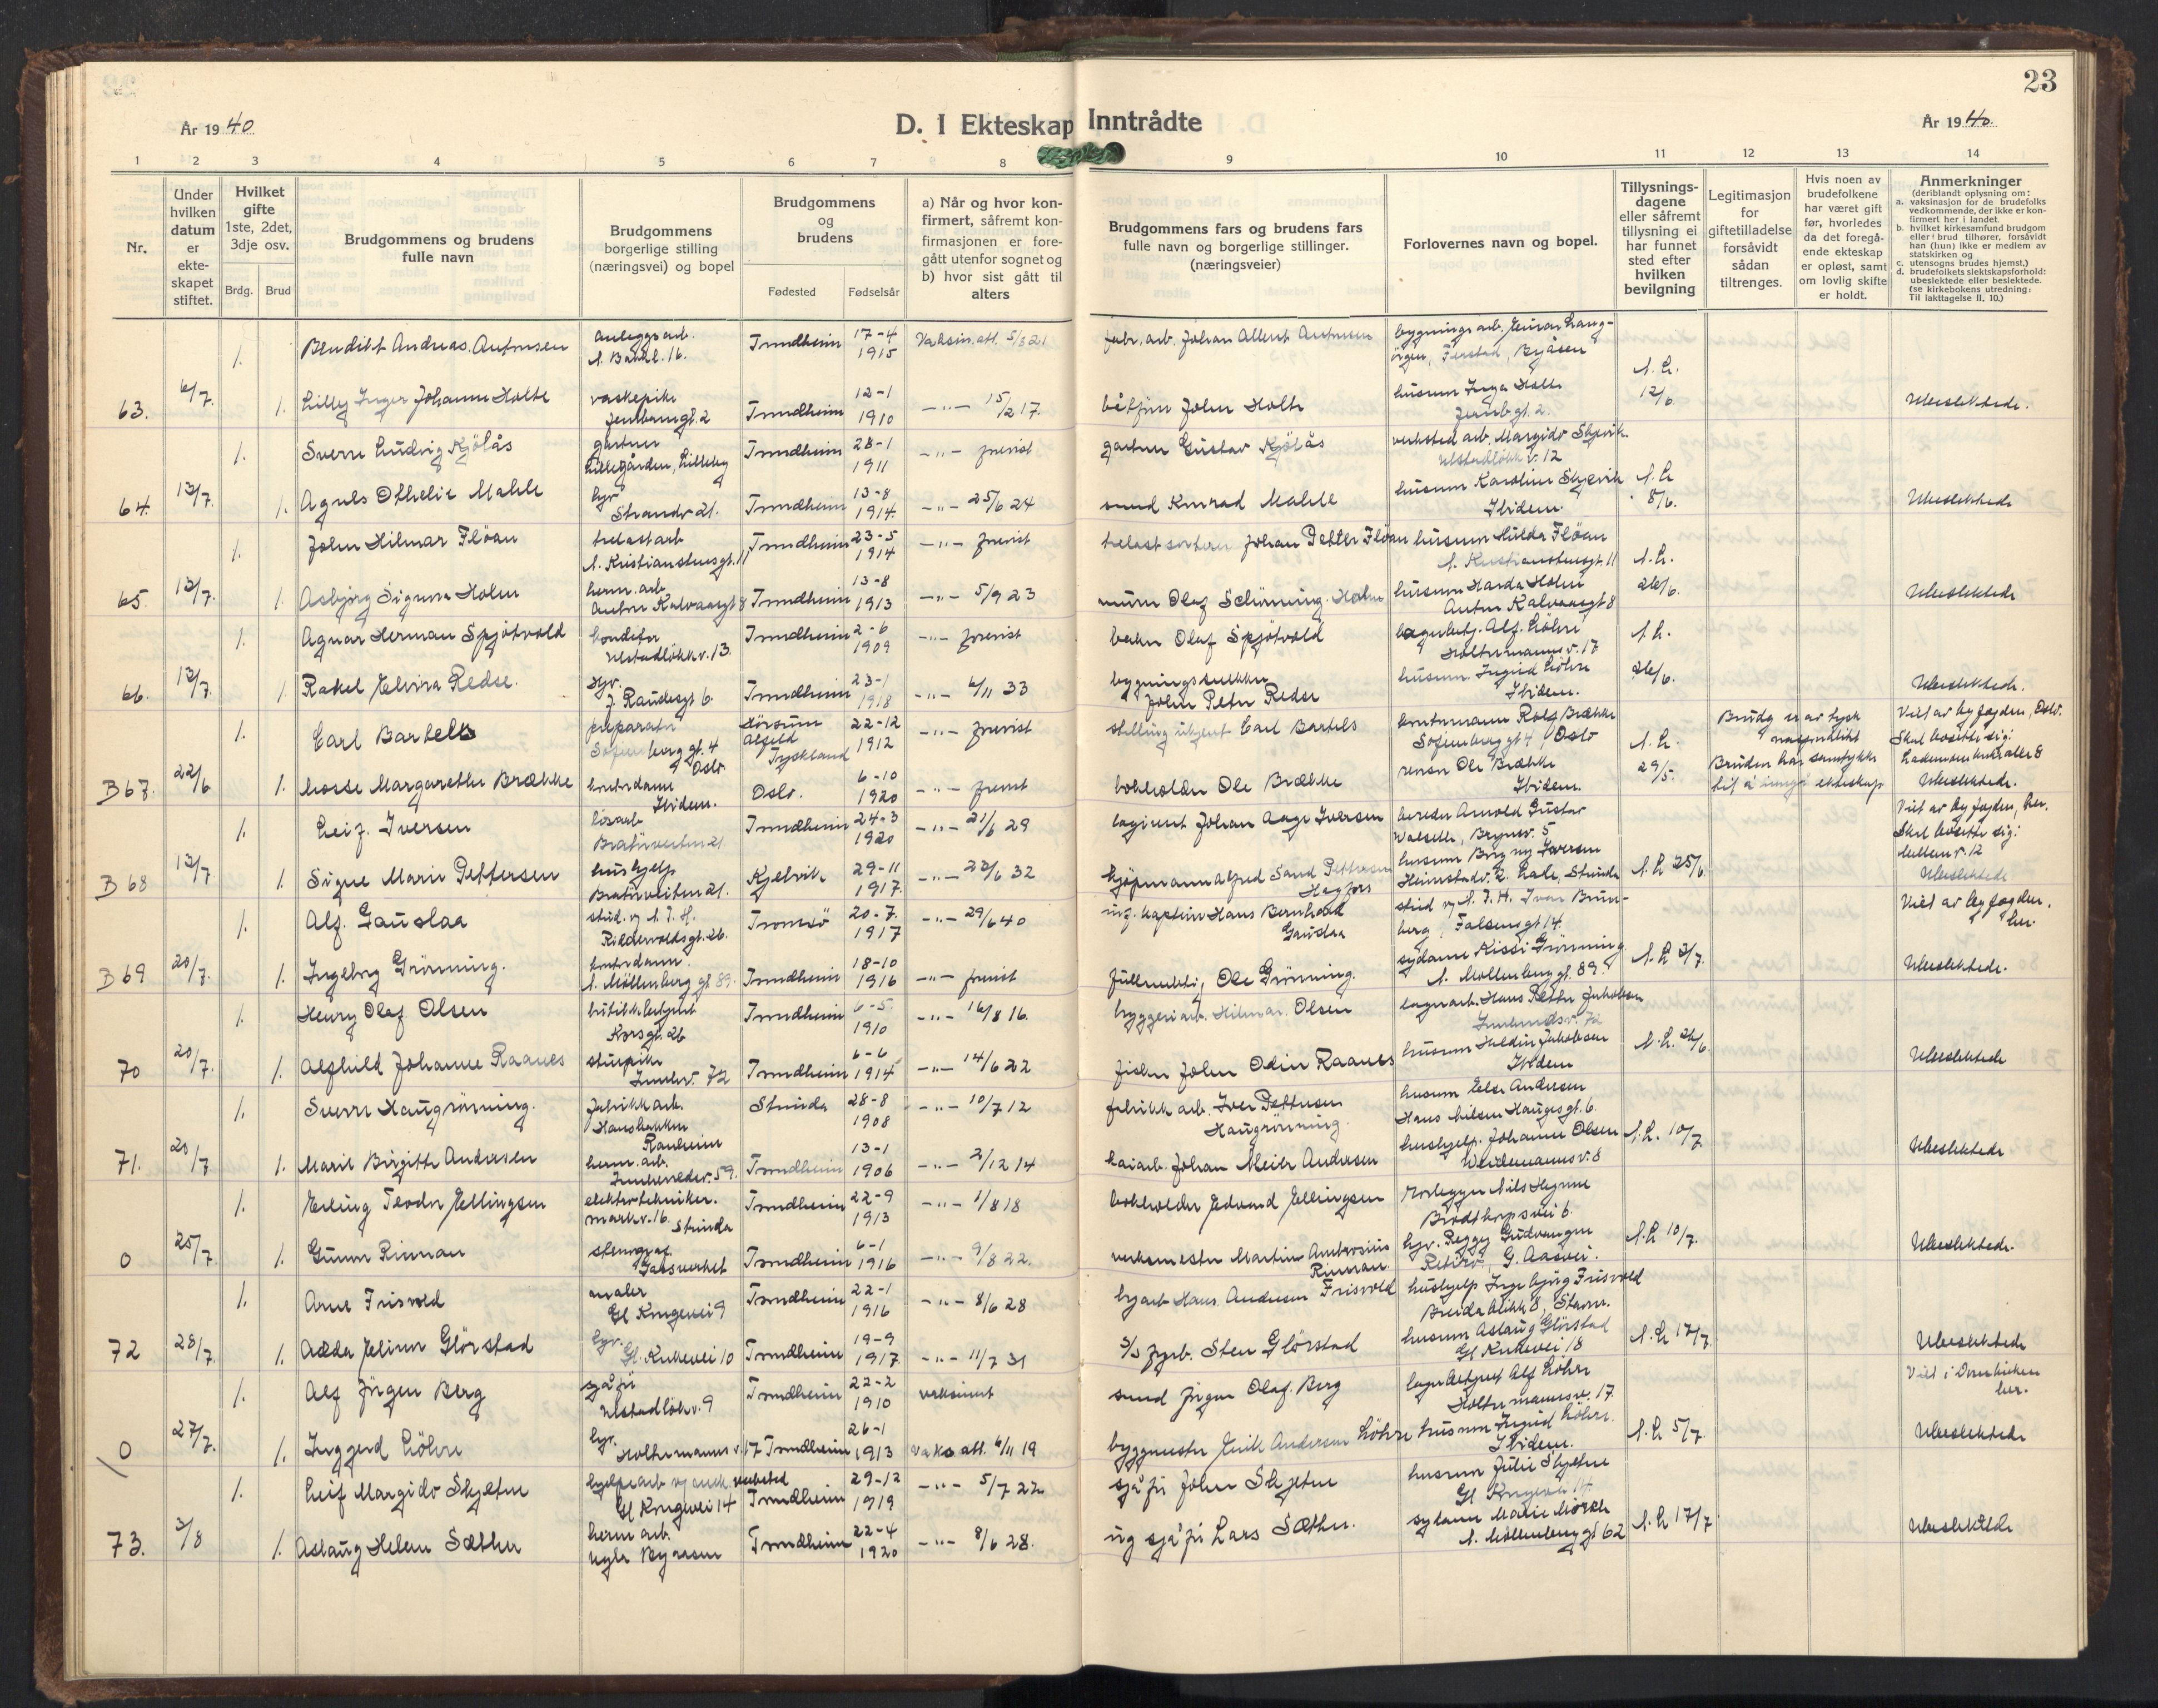 23
År 1940
D. I Ekteskap Inntrådte
År 1940.
1 2 3 4 5 6 7 8 9 10 11 12 13 14
Nr.
Under hvilken datum er ekte-skapet stiftet.
Hvilket gifte 1ste, 2det, 3dje osv.
Brdg. Brud
Brudgommens og brudens fulle navn
Brudgommens borgerlige stilling (næringsvei) og bopel
Brudgommens og brudens
Fødested Fødselsår
a) Når og hvor kon-
firmert, såfremt kon-
firmasjonen er fore-
gått utenfor sognet og
b) hvor sist gått til
alters
Brudgommens fars og brudens fars
fulle navn og borgerlige stillinger.
(næringsveier)
Forlovernes navn og bopel.
Tillysnings-
dagene
eller såfremt
tillysning ei
har funnet
sted efter
hvilken
bevilgning
Legitimasjon
for
giftetilladelse
forsåvidt
sådan
tiltrenges.
Hvis noen av
brudefolkene
har været gift
før, hvorledes
da det foregå-
ende ekteskap
er opløst, samt
om lovlig skifte
er holdt.
Anmerkninger
(deriblandt oplysning om:
a. vaksinasjon for de brudefolks
vedkommende, der ikke er kon-
firmert her i landet.
b. hvilket kirkesamfund brudgom
eller brud tilhører, forsåvidt
han (hun) ikke er medlem av
statskirken og
c. utensogns brudes hjemst.)
d. brudefolkets slektskapsforhold:
ubeslektede eller beslektede.
(se kirkebokens utredning:
Til iakttagelse II, 10.)
1. Bendikt Andreas Antonsen anleggsarb. N. Bakkl. 16. Trondheim 17-4 1915 Vaksin.att. 5/3 21 fabr. arb. Johan Albert Antonsen
63. 6/7. 1. Lilly Inger Johanne Holte vaskepike Jernbanegt. 2 Trondheim 12-1 1910 -"- 15/2 17. båtfører John Holte husmor Inga Holte Jernb.gt. 2. N. L. 12/6 Ubeslektede.
1. Sverre Ludvig Kjölås gartner Lillegården, Lilleby Trondheim 28-1 1911 -"- forevist gartner Gustav Kjölås verksted arb. Margido Skjevik Ulstadløkkv. 12
64. 13/7. 1. Agnes Othelie Mahle hjv. Strandv. 21. Trondheim 13-8 1914. -"- 25/6 24 smed Konrad Mahle husmor Karoline Skjevik Ibidem. N. L. 8/6. Ubeslektede
1. John Hilmar Flöan trelastarb N. Kristianstensgt. 11 Trondheim 23-5 1914 -"- forevist trelastsorterer Johan Petter Flöan husmor Hilda Flöan N. Kristianstensgt. 11
65. 13/7. 1. Asbjörg Sigunn Holm herm. arb. Anton Kalvaasgt 8 Trondheim 13-8 1913 -"- 5/9 23 murer Olaf Schönning Holm husmor Harda Holm Anton Kalvaasgt 8 N. L. 26/6. Ubeslektede
1. Agnar Herman Spjötvold konditor Ulstadlökkv. 13. Trondheim 2-6 1909 -"- forevist baker Olaf Spjötvold lagerbetj. Alf Löhre Holtermannsv. 17
66. 13/7. 1. Rakel Elvira Redse. hjv. J. Raudesgt 6. Trondheim 23-1 1918 -"- 6/11 33 bygningssnekker John Peter Redse husmor Ingrid Löhre Ibidem. N. L. 26/6. Ubeslektede.
1. Carl Bartels preparatør Sofienberg gt. 4 Oslo Alfeld Tyskland 22-12 1912 -"- forevist stilling ukjent Carl Bartels Rolf Brække Sofienberggt 4, Oslo Brudg er av tysk nasjonalitet Viet av byfogden, Oslo. Skal bosette sig:
B 67. 22/6 1. Losse Margarethe Brække kontordame Ibidem. Oslo. 6-10 1920 -"- forevist bokholder Ole Brække revisor Ole Brække Ibidem. N. L. 29/5. Bruden har samtykke til å inngå ekteskap Lademoen kirkealle 8 Ubeslektede.
1. Leif Iversen lösarb Brattörveiten 21 Trondheim 24-3 1920 -"- 21/6 29 Johan Aage Iversen bereder Arnold Gustav Brynsv. 5 Viet av byfogden, her. Skal bosette sig: Mellemv. 12
B 68 13/7. 1. Signe Marie Pettersen hushjelp Brattörveiten 21. Kjelvik 29-11 1917. -"- 23/6 32 kjöpmann Alfred Sand Pettersen Hagfors husmor Borgny Iversen Heimstadv. 2. Lade, Strinda N. L 25/6. Ubeslektede
1. Alf Gauslaa stud. v/ N. T. H. Ridderveldsgt. 26. Tromsö 20-7. 1917 -"- 29/6 40 ing. kaptein Hans Bernhard Gauslaa stud v/ N. T. H. Ivar Brun-berg. Falsensgt 14. Viet av byfogden. her.
B 69 20/7. 1. Ingeborg Grönning. kontordame. N. Möllenberg gt 89. Trondheim 18-10 1916 -"- forevist fullmektig Ole Grönning. sydame Kissi Grönning N. Möllenberg gt. 89. N. L 3/7. Ubeslektede.
1. Henry Olaf Olsen butikkbetjent Korsgt. 26 Trondheim 6-5 1910 -"- 16/8 16. bryggeriarb. Hilmar Olsen lagerarb. Hans Petter Jakobsen Innherredsv. 72
70 20/7. 1. Alfhild Johanne Raanes stuepike Innherr. 72 Trondheim 6-6 1914 -"- 14/6 22 fisker John Odin Raanes husmor Jakobsen Ibidem N. L. 26/6. Ubeslektede
1. Sverre Haugrönning. fabrikk arb. Hansbakken Ranheim Strinda 28-8 1908 -"- 10/7 12 fabrikk arb. Iver Pettersen Haugrönning. husmor Else Andersen Hans Nilsen Haugesgt. 6.
71. 20/7 1. Marit Birgitte Andersen herm. arb. Innherredsv. 59. Trondheim 13-1 1906 -"- 2/12 14 kaiarb. Johan Meier Andersen hushjelp. Johanne Olsen Weidemannsv. 8 N. L. 10/7. Ubeslektede
1. Erling Teodor Ellingsen elektrotekniker. Markv. 16. Strinda Trondheim 22-9 1913 -"- 1/8 18 bokholder Edvard Ellingsen rørlegger Nils Hegme Brodtkorpsvei 6.
0 25/7. 1. Gunn Rinnan stenograf. Gassverket Trondheim 6-1 1916 -"- 9/8 22. verksmester Martin Ambrosius Rinnan hjv. Peggy Gudvangen Retiro, G. Aasvei. N. L 10/7. Ubeslektede.
1. Arne Frisvold maler Gl Kongevei 9 Trondheim 22-1 1916 -"- 8/6 28 byarb Hans Andersen Frisvold hushjelp Ingebjörg Frisvold Breidablikk 8, Stavne.
72 28/7. 1. Adda Elinor Glörstad hjv. Gl. Kirkevei 10 Trondheim 19-9 1917. -"- 11/7 31 s/s fyrb. Sten Glörstad husmor Aslaug Glörstad Gl Kirkevei 18 N. L 17/7. Ubeslektede
1. Alf Jörgen Berg sjåför Ulstadlökv. 9 Trondheim 22-2 1910 vaksinert smed Jörgen Olaf Berg lagerbetjent Alf Löhre Holtermannsv. 17. Viet i Domkirken her.
0 27/7. 1. Inggjerd Löhre hjv. Holtermanns v. 17 Trondheim 26-1 1913 vaks att. 6/11 19 byggmester Erik Andersen Löhre husmor Ingrid Löhre. Ibidem. N. L 5/7. Ubeslektede
1. Leif Margido Skjetne hjelpearb v/ mek verksted Gl Kongevei 14 Trondheim 29-12 1919 -"- 5/7 22 sjåför John Skjetne husmor Julie Skjetne Gl Kongevei 14
73. 3/8 1. Aslaug Helene Sæther herm arb. Trondheim 22-4 1920 -"- 8/6 28. sjåför Lars Sæther. sydame Marie N. Möllenberg gt 62 N. L 17/7 Ubeslektede